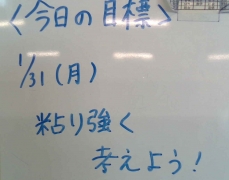 <今日の目標>
1/31(月)
粘り強く
考えよう!